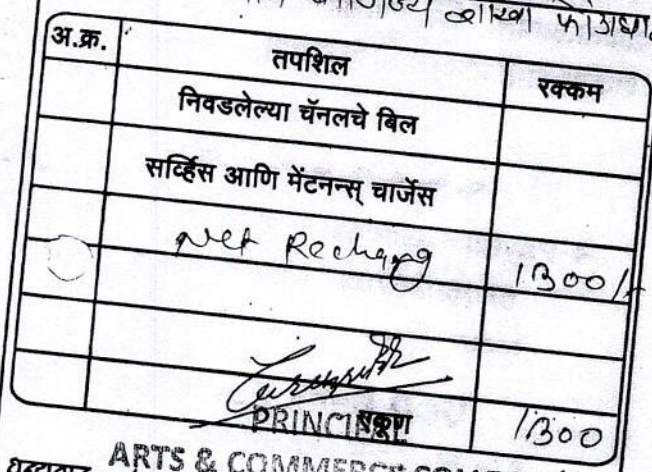 वाणिज्य शाखा
अ.क्र. तपशिल रक्कम
निवडलेल्या चॅनलचे बिल
सर्व्हिस आणि मेंटनन्स् चार्जेस
Net Recharg 1300/-
PRINCIPAL
एकूण 1300
धन्यवाद ARTS & COMMERCE